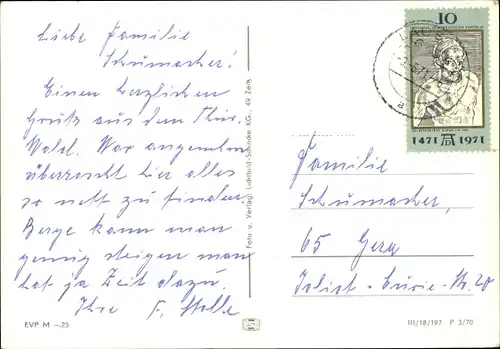 Liebe Familie
Schumacher!
Einen herzlichen
Gruß aus dem Thür.
Wald. War angenehm
überrascht hier alles
so nett zu finden.
Berge kann man
genug steigen man
hat ja Zeit dazu.
Ihre F. Stolle
EVP M –.25
Foto u. Verlag Lichtbild-Schincke KG., 49 Zeitz
10
1471 1971
Familie
Schumacher,
65 Gera
Joliot-Curie-Str. 20
III/18/197 P 3/70